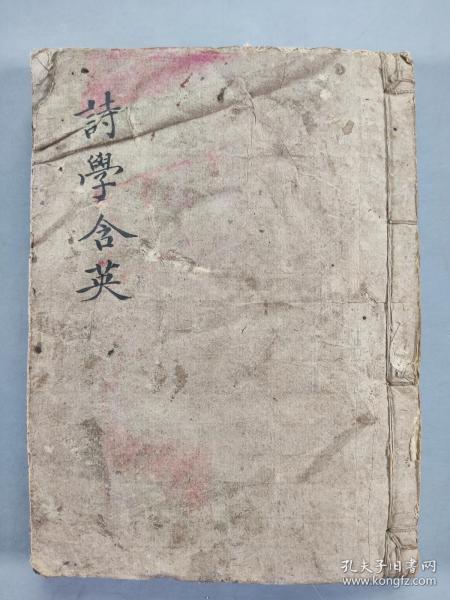 詩學含英
孔夫子旧书网
www.kongfz.com